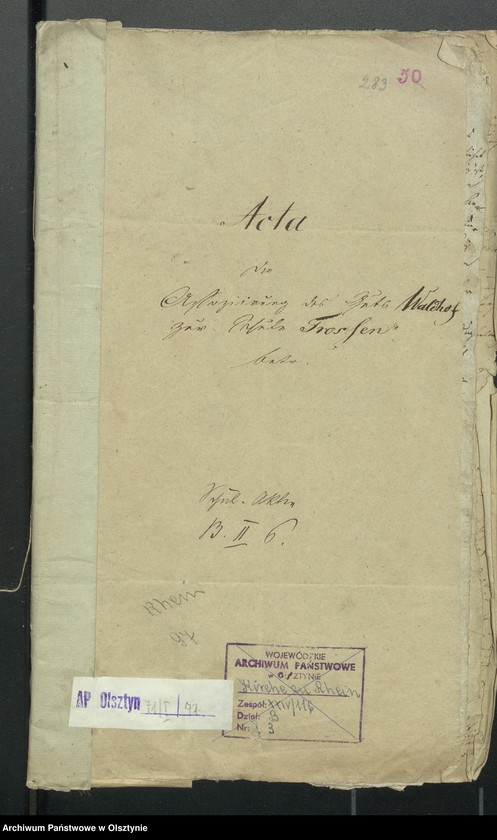 283 50
Acta
die
Assoziirung des Guts Waldhof
zur Schule Trossen
betr.
Schul-Akten
B. II 6.
Rhein
97
WOJEWÓDZKIE
ARCHIWUM PAŃSTWOWE
w OLSZTYNIE
Kirche Rhein
Zespół: XXIV/118
Dział: B
Nr: 3
AP Olsztyn
Archiwum Państwowe w Olsztynie